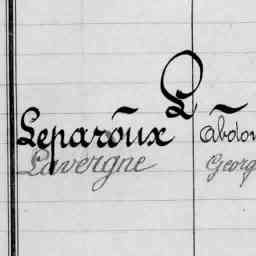 L
Leparoux Abdon
Lavergne Georg